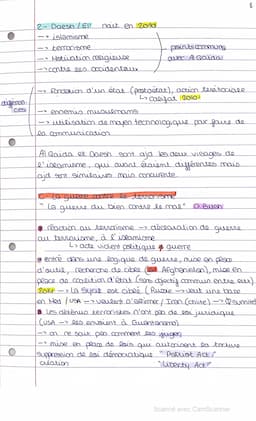 2 - Daesh / EI nait en 2010
→ islamisme
→ terrorisme
→ Motivation religieuse
→ contre les occidentaux
points communs avec Al Qaïda
différences
→ Fondation d'un état (protoétat), action territoriale
↳ califat 2010
→ ennemis musulmans
→ utilisation de moyen technologique pour faire de
la communication
Al Qaïda et Daesh sont ajd les deux visages de
l'islamisme, qui avant étaient différentes mais
ajd sont similaires mais concurrente.
C. La guerre contre le terrorisme
"La guerre du bien contre le mal" G. Bush
réaction au terrorisme → déclaration de guerre
au terrorisme, à l'islamisme
↳ acte violent politique ≠ guerre
entré dans une logique de guerre, mise en place
d'outils, recherche de cible (Afghanistan), mise en
place de coalition d'état (sans objectif commun entre est)
→ La Syrie est cible (Russie → veut une base
en Med / USA → veulent d'éliminer / Iran (chiite)
Les détenus terroristes n'ont pas de loi juridique
(USA → les envoient à Guantanamo)
→ on ne sait pas comment les juger
→ mise en place de lois qui autorisent la torture
suppression de loi démocratique "Patriot Act"
"Liberty Act"
Scanné avec CamScanner